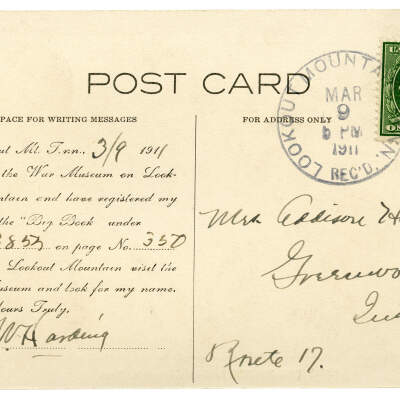 POST CARD
PACE FOR WRITING MESSAGES
ut Mt. Tenn., 3/9 1911
the War Museum on Look-
ntain and have registered my
the "Big Book under
853 on page No. 350
Lookout Mountain visit the
useum and look for my name.
ours Truly,
W Harding
FOR ADDRESS ONLY
LOOKOUT MOUNTA
MAR
9
PM
1911
REC'D.
Mrs Addison H
Greenwo
Route 17.